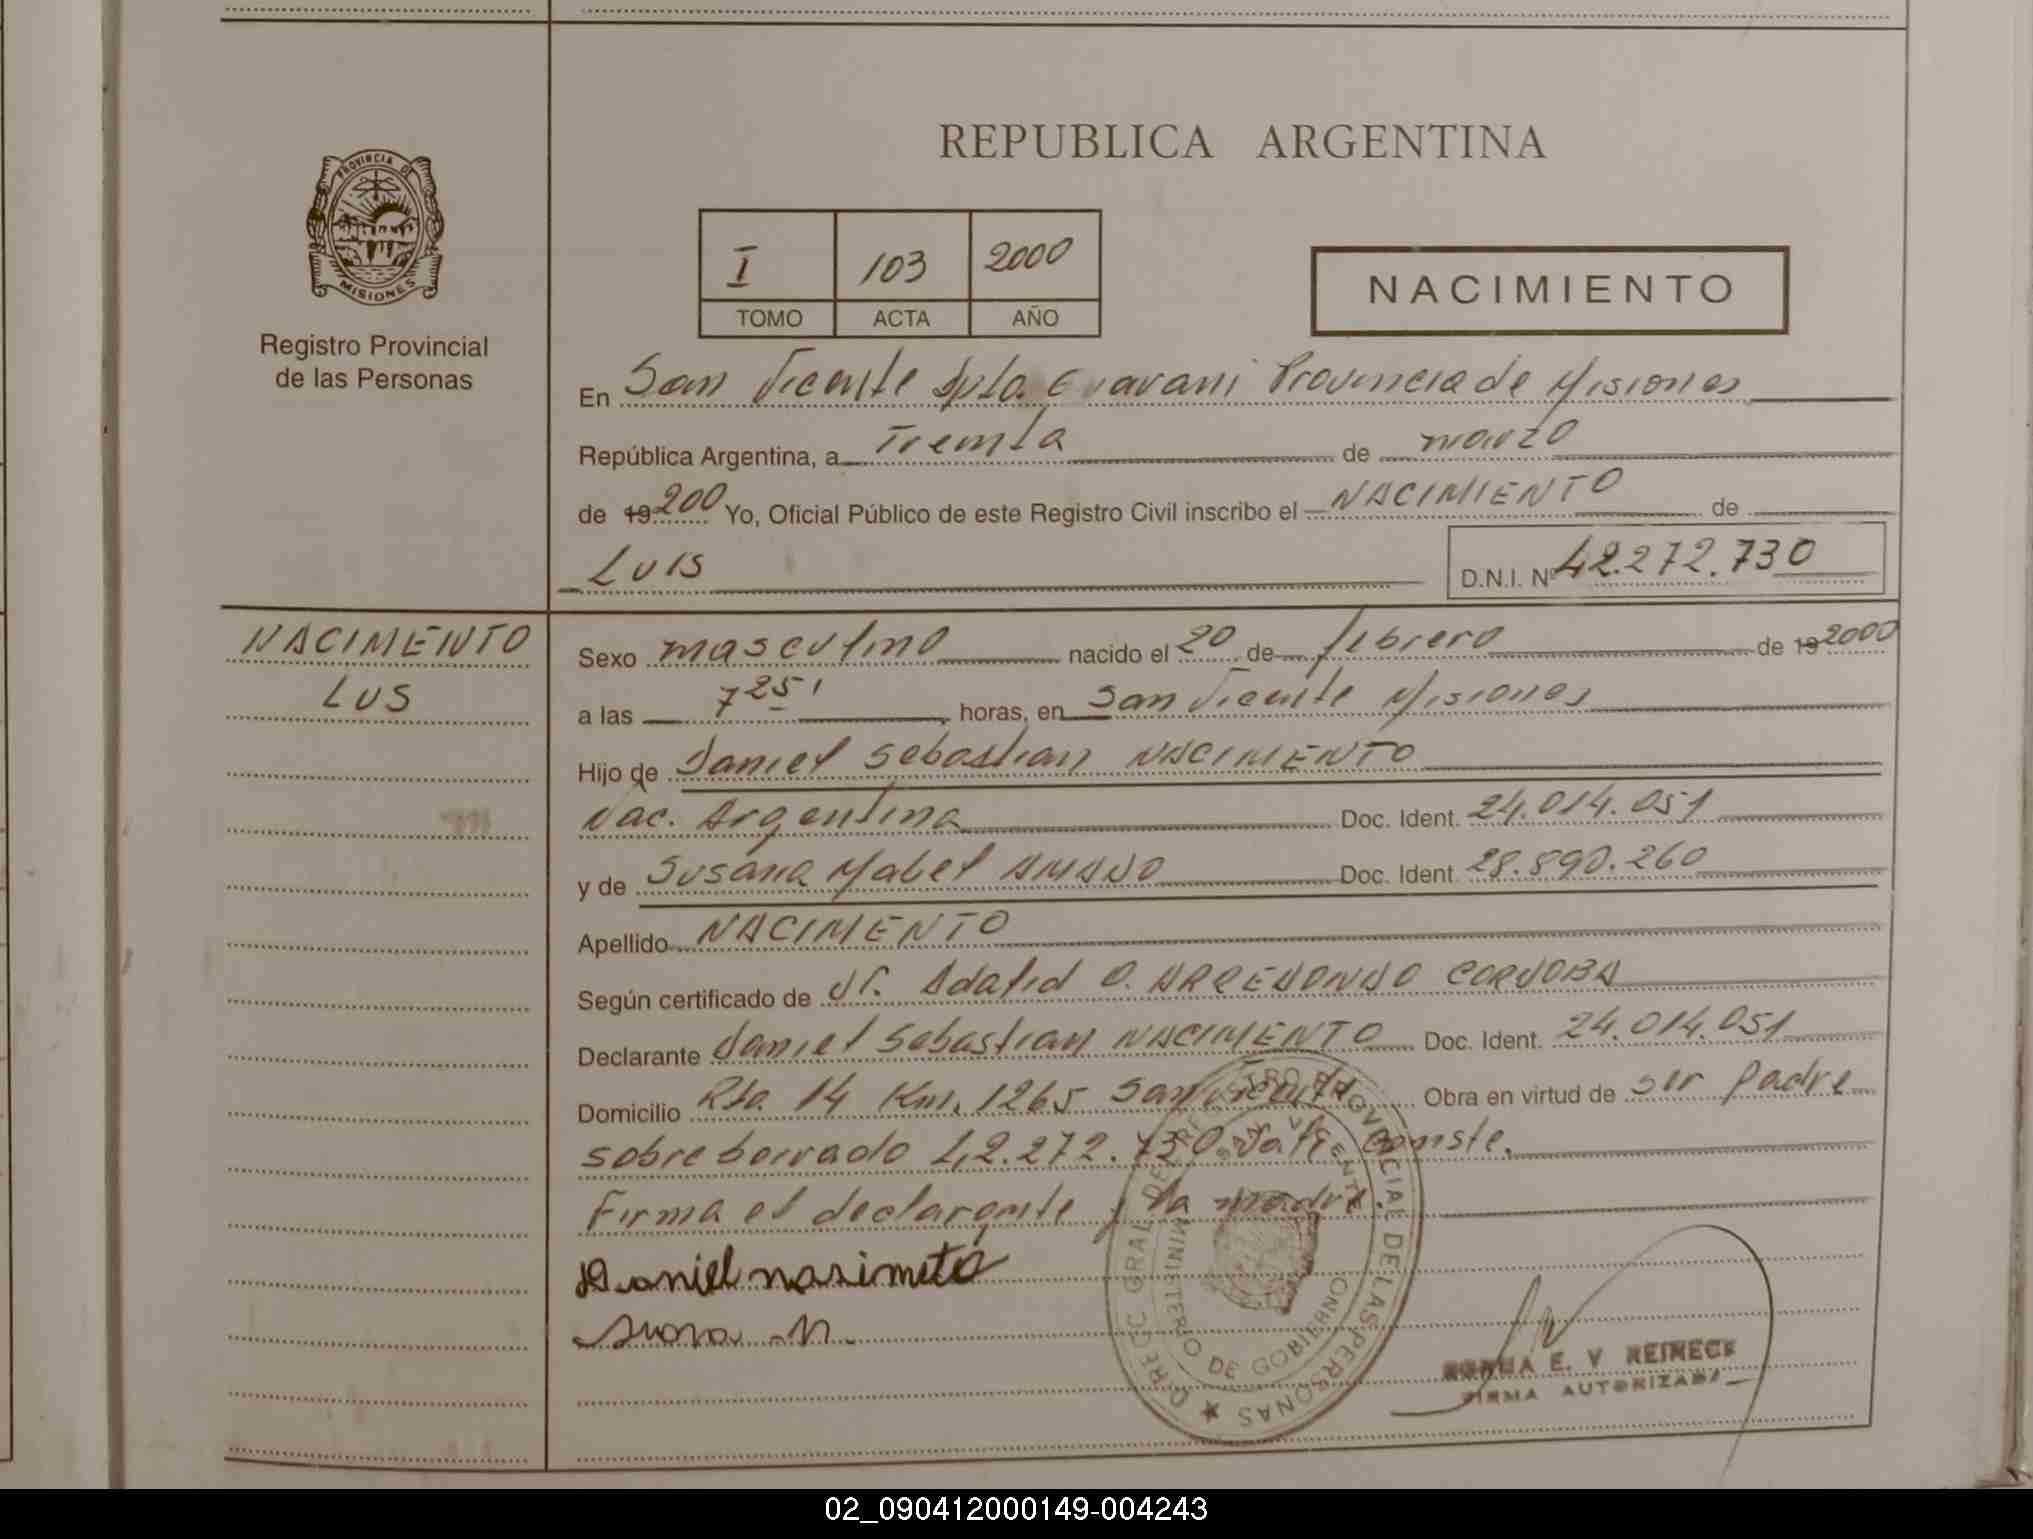 REPUBLICA ARGENTINA
PROVINCIA DE
MISIONES
Registro Provincial
de las Personas
I 103 2000
TOMO ACTA AÑO
NACIMIENTO
En San Vicente Dpto. Guarani Provincia de Misiones
República Argentina, a Treinta de marzo
de 19 200 Yo, Oficial Público de este Registro Civil inscribo el NACIMIENTO de
LUIS
D.N.I. Nº 42.272.730
NACIMENTO
LUS
Sexo masculino nacido el 20 de febrero de 19 2000
a las 7 25' horas, en San Vicente Misiones
Hijo de Daniel Sebastian NACIMENTO
Nac. Argentina Doc. Ident. 24.014.051
y de Susana Mabel AMADO Doc. Ident. 28.890.260
Apellido NACIMENTO
Según certificado de Dr. Adalid O. ARREDONDO CORDOBA
Declarante Daniel Sebastian NACIMENTO Doc. Ident. 24.014.051
Domicilio Rta. 14 Km. 1265 San Vicente Obra en virtud de ser Padre
sobre borrado 42.272.730 Vale conste.
Firma el declarante y la madre.
Daniel nasimeto
DIRECC GRAL DEL REGISTRO PROVINCIAL DE LAS PERSONAS
MINISTERIO DE GOBIERNO
SAN VICENTE
E. V REINECK
FIRMA AUTORIZADA
02_090412000149-004243